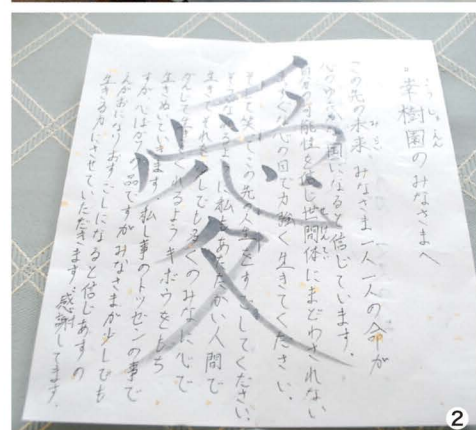 幸樹園のみなさまへ
この先の未来、みなさま一人一人の命が
心のゆたかな国になると信じています。
自分の可能性を信じ世間体にまどわされない
心の目で力強く生きてください。
そして笑ってこの先の人生をすごしてください。
に私もあたたかい人間で
生き それを少しでも多くのみなに心で
かんじて れるようキボウをもち
生きぬいていきます。私し事のトッセンの事で
すが心ばかりの品ですがみなさまが少しでも
えがおになりおすごしになると信じあすの
生きる力にさせていただきます。感謝してます。
愛
②